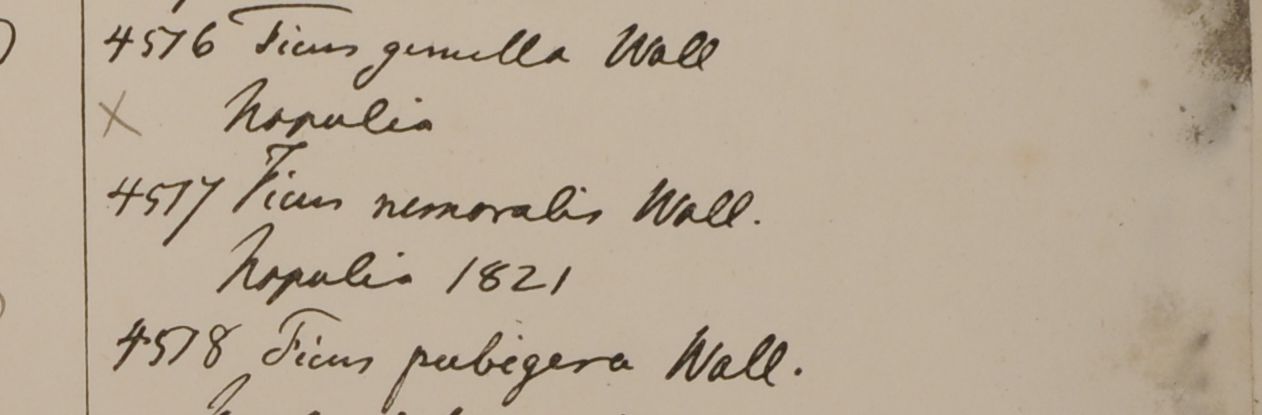 4516 Ficus gemella Wall
X Napalia
4517 Ficus nemoralis Wall.
Napalia 1821
4518 Ficus pubigera Wall.